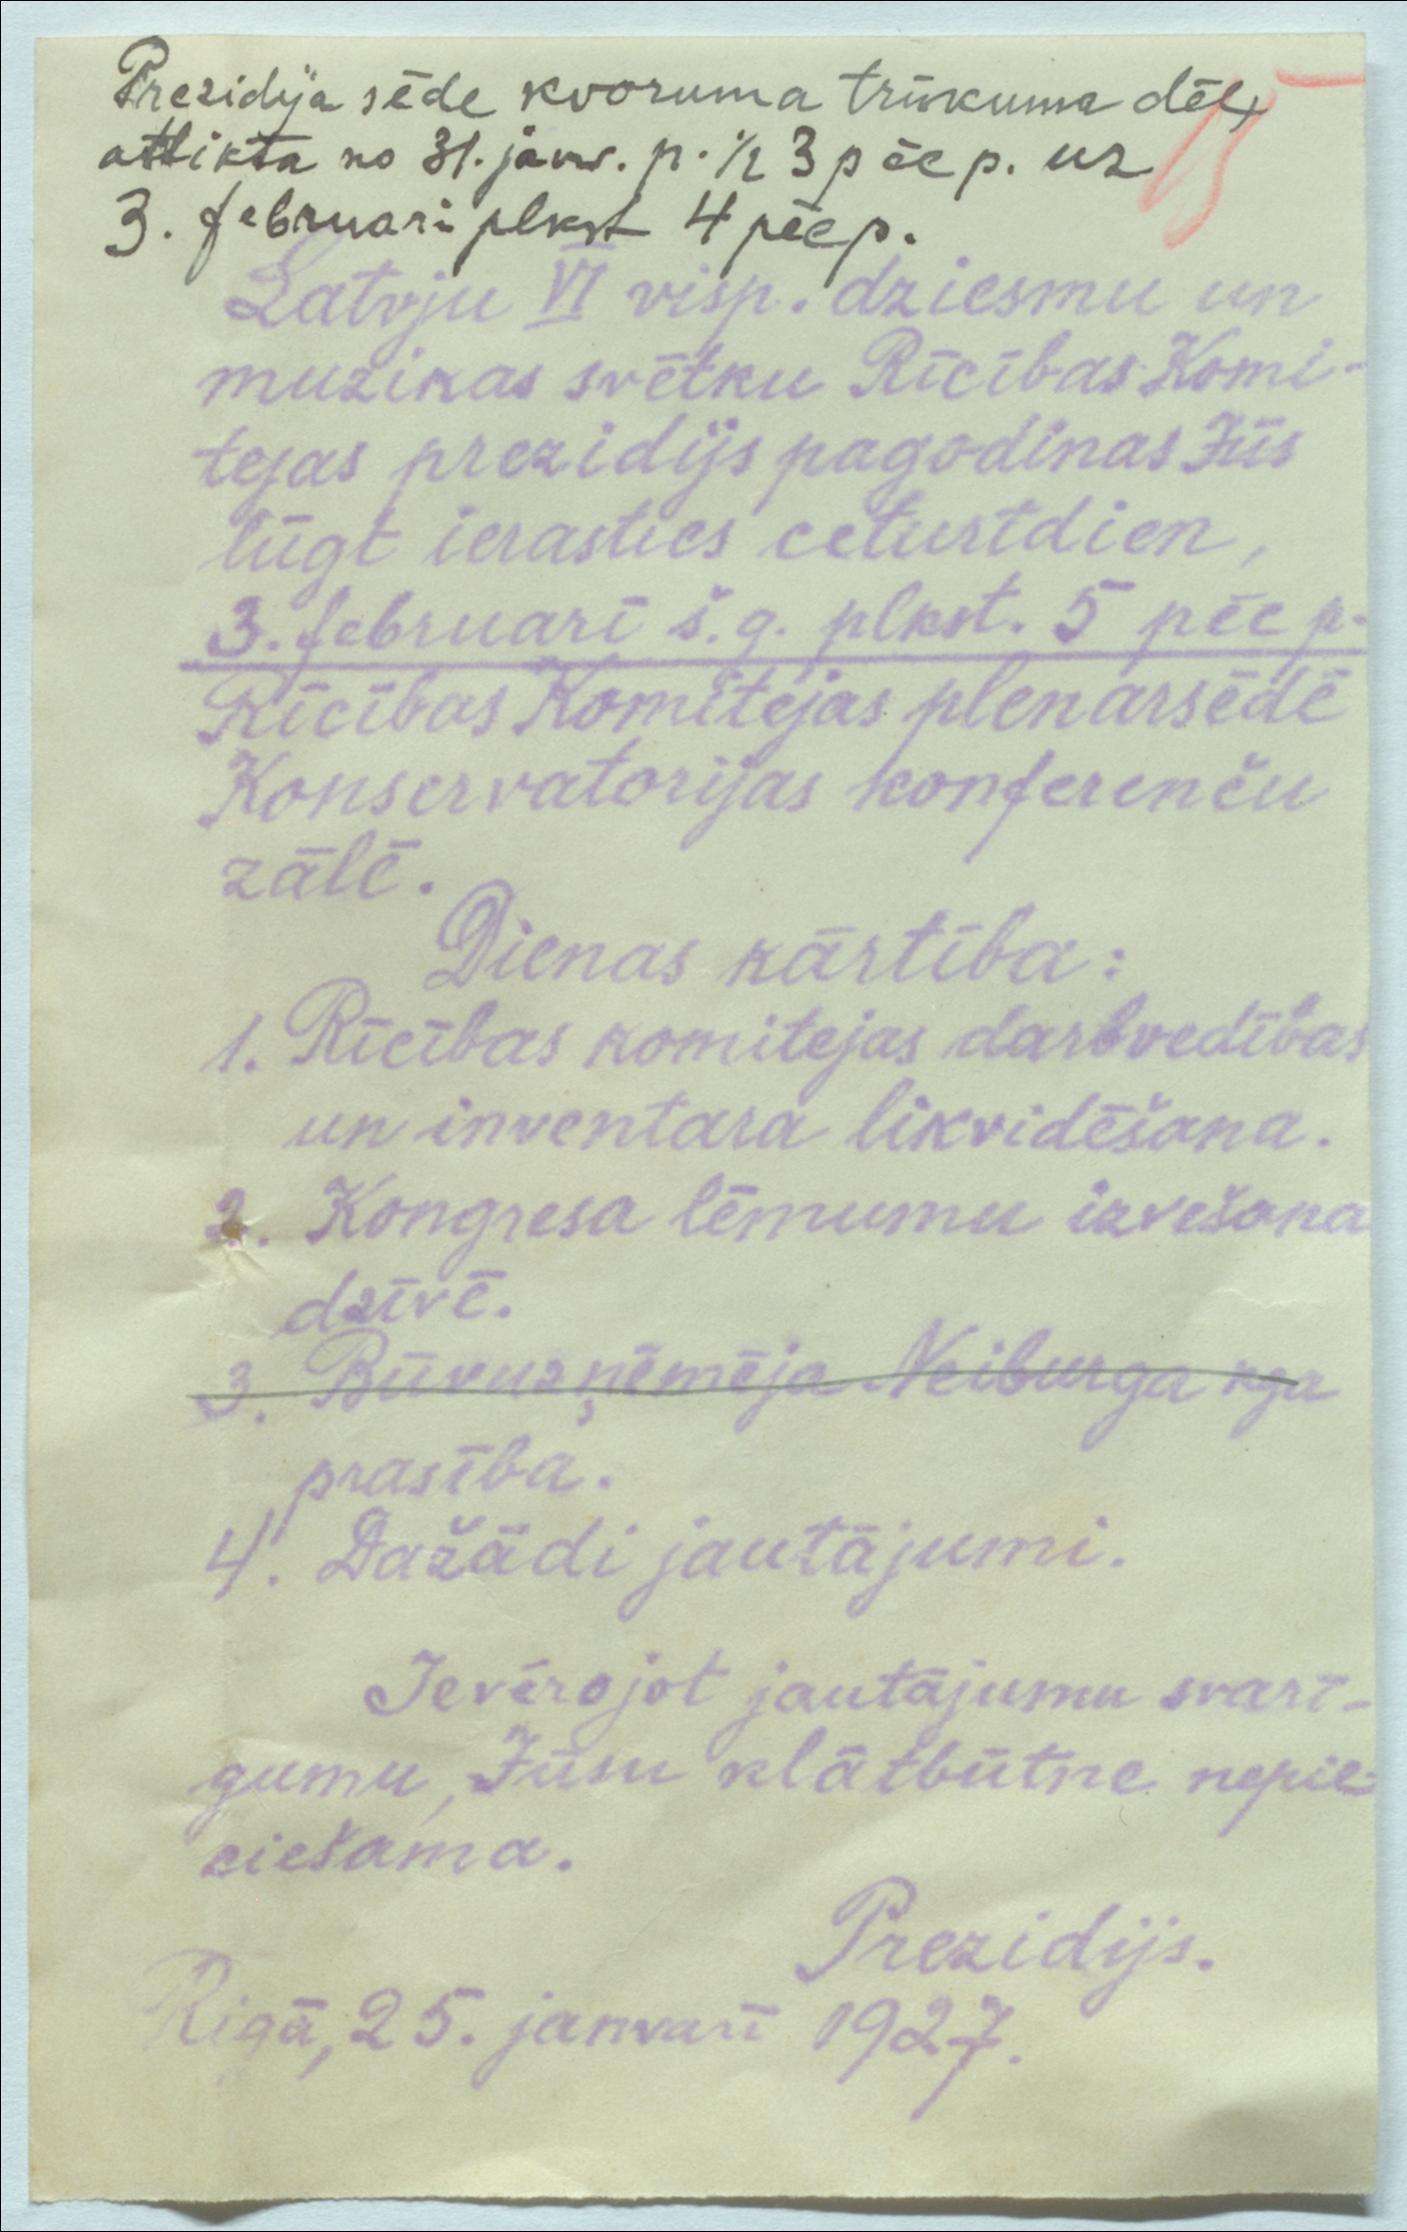 Prezidija sēde kvoruma trūkuma dēļ
atlikta no 31. janv. p. ½ 3 pēc p. uz
3. februari plkst 4 pēc p.
15
Latvju VI visp. dziesmu un
muzikas svētku Rīcības Komi-
tejas prezidijs pagodinas Jūs
lūgt ierasties ceturtdien,
3. februarī š.g. plkst. 5 pēc p.
Rīcības Komitejas plenarsēdē
Konservatorijas konferenču
zālē.
Dienas kārtība:
1. Rīcības komitejas darbvedības
un inventara likvidēšana.
2. Kongresa lēmumu izvešana
dzīvē.
3. Būvuzņēmēja Neiburga kga
prasība.
4. Dažādi jautājumi.
Ievērojot jautājumu svarī-
gumu, Jūsu klātbūtne nepie-
ciešama.
Prezidijs.
Rigā, 25. janvarī 1927.